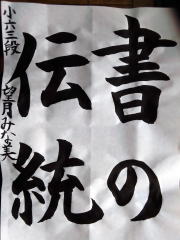 書の
伝統
小六三段 望月みな美